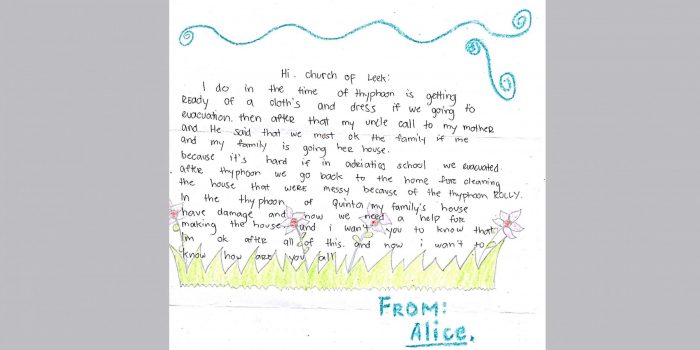 Hi. church of Leek:
I do in the time of thyphoon is getting
READY of a cloth's and dress if we going to
evacuation. then after that my uncle call to my mother
and He said that we most ok the family if me
and my family is going her house.
because it's hard if in adriatico school we evacuated.
after thyphoon we go back to the home for cleaning
the house that were messy because of the thyphoon ROLLY.
In the thyphoon of Quinta my family's house
have damage and now we need a help for
making the house. and i wan't you to know that
I'm ok after all of this. and now i wan't to
know how are you all
FROM:
Alice.